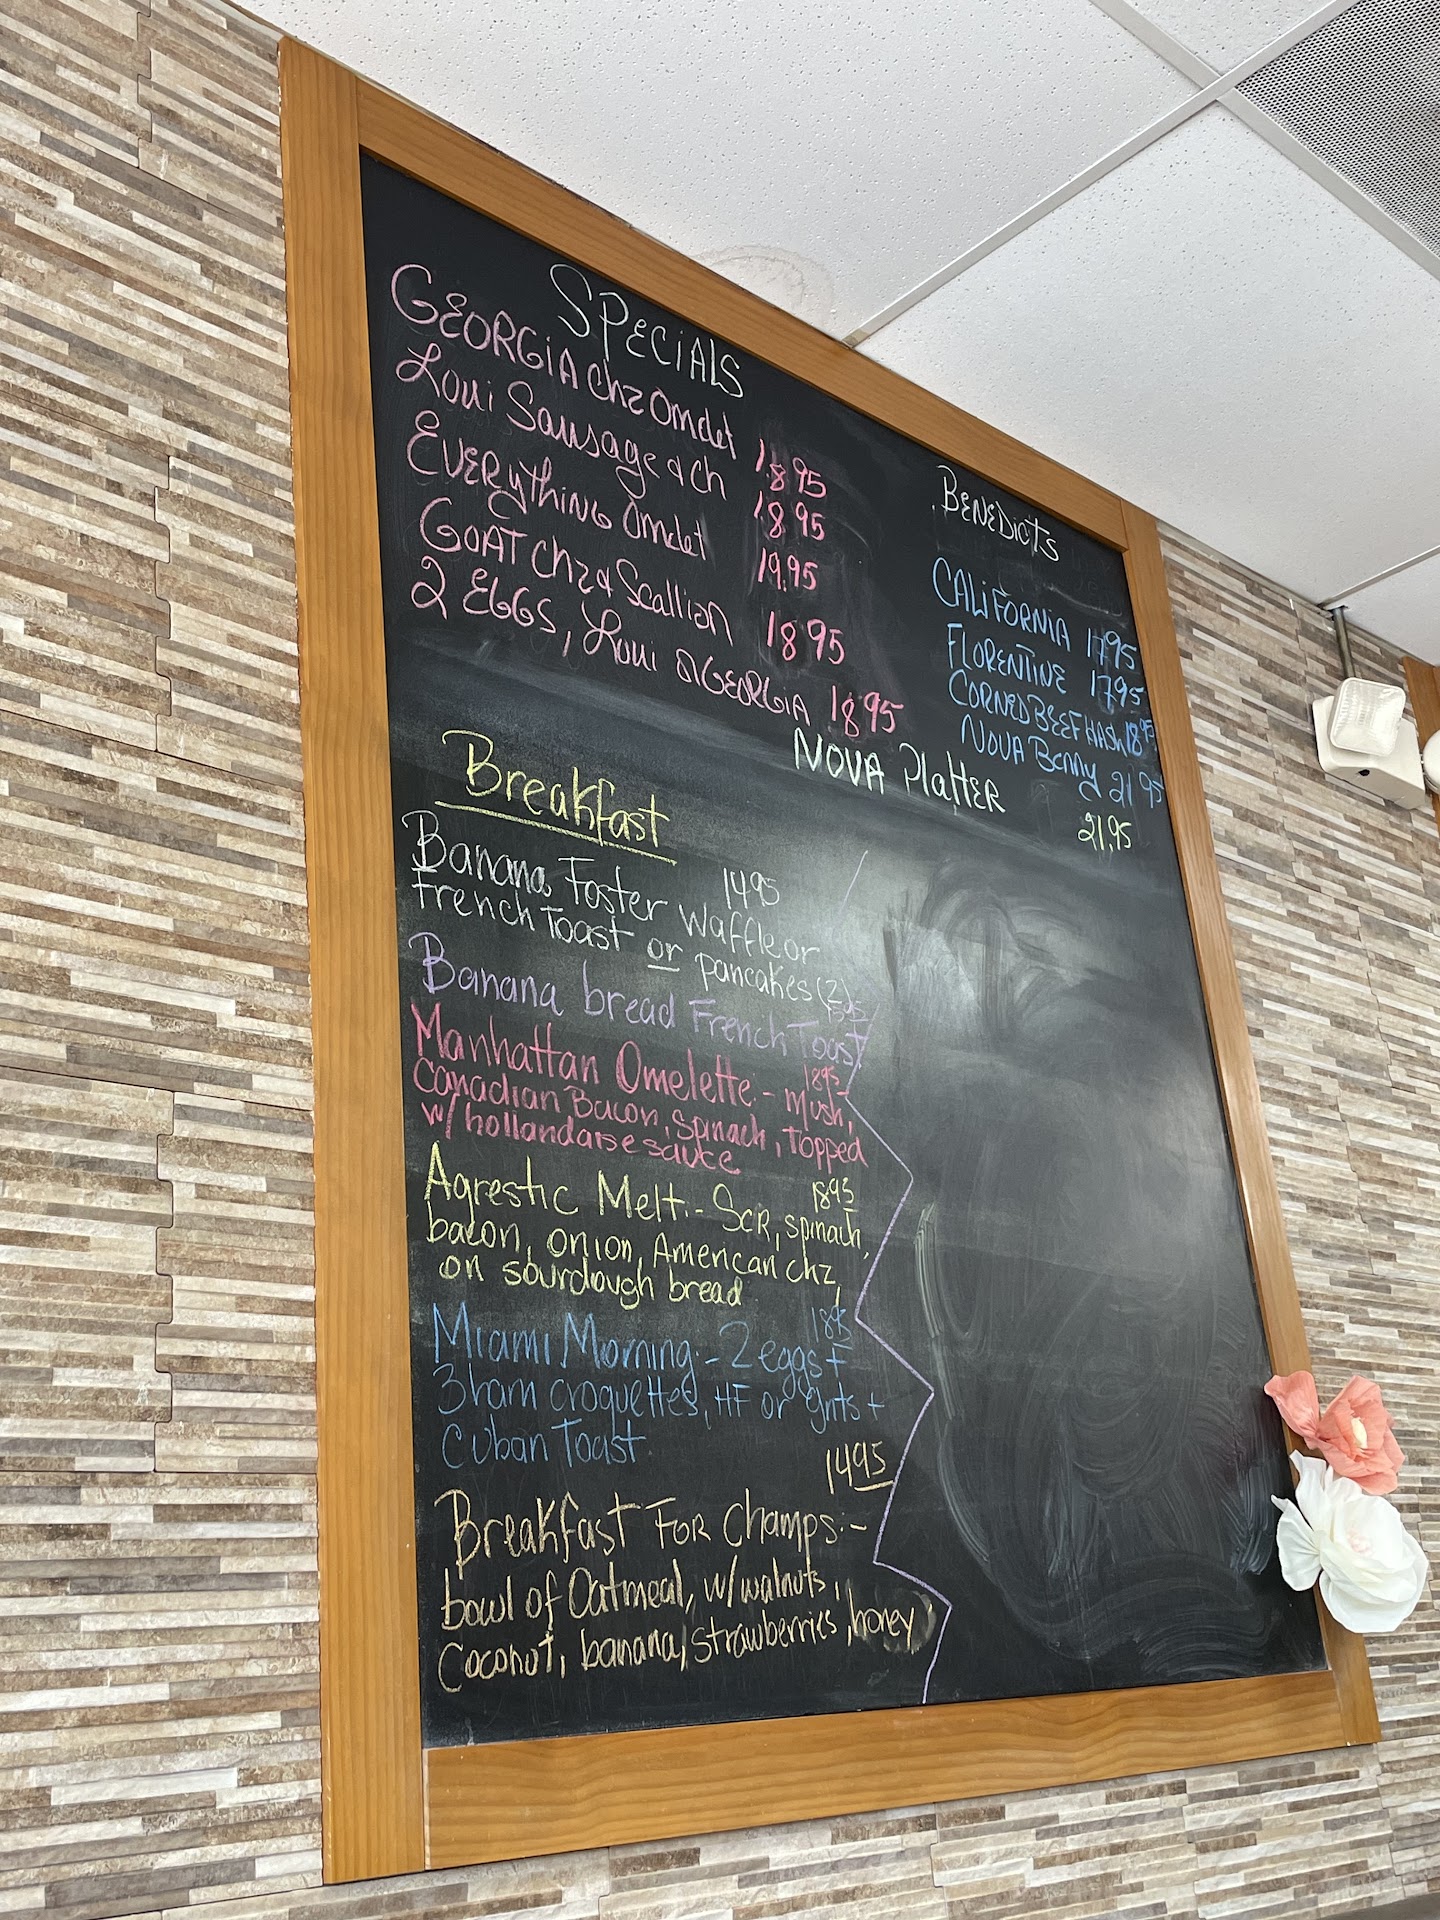 SPECIALS
GEORGIA chz Omelet 18.95
Loui Sausage & Ch 18.95
EVERYthING Omelet 19.95
GOAT Chz & Scallion 18 95
2 EGGS, Loui & GEORGIA 18 95
BENEDICTS
CALIFORNIA 17.95
FLORENTINE 1795
CORNED BEEF HASH 18.95
NOVA Benny 21 95
NOVA PlattER
21.95
Breakfast
Banana Foster 1495
Waffle or
French Toast or pancakes (2)
Banana bread French Toast
Manhattan Omelette:- Mush, 1895
Canadian Bacon, spinach, topped
w/ hollandaise sauce
Agrestic Melt:- Scr, spinach, 1895
bacon, onion, American chz,
on sourdough bread
Miami Morning:- 2 eggs + 1895
3 ham croquettes, HF or grits +
Cuban Toast
1495
Breakfast FOR Champs:-
bowl of Oatmeal, w/walnuts,
Coconut, banana, strawberries, honey